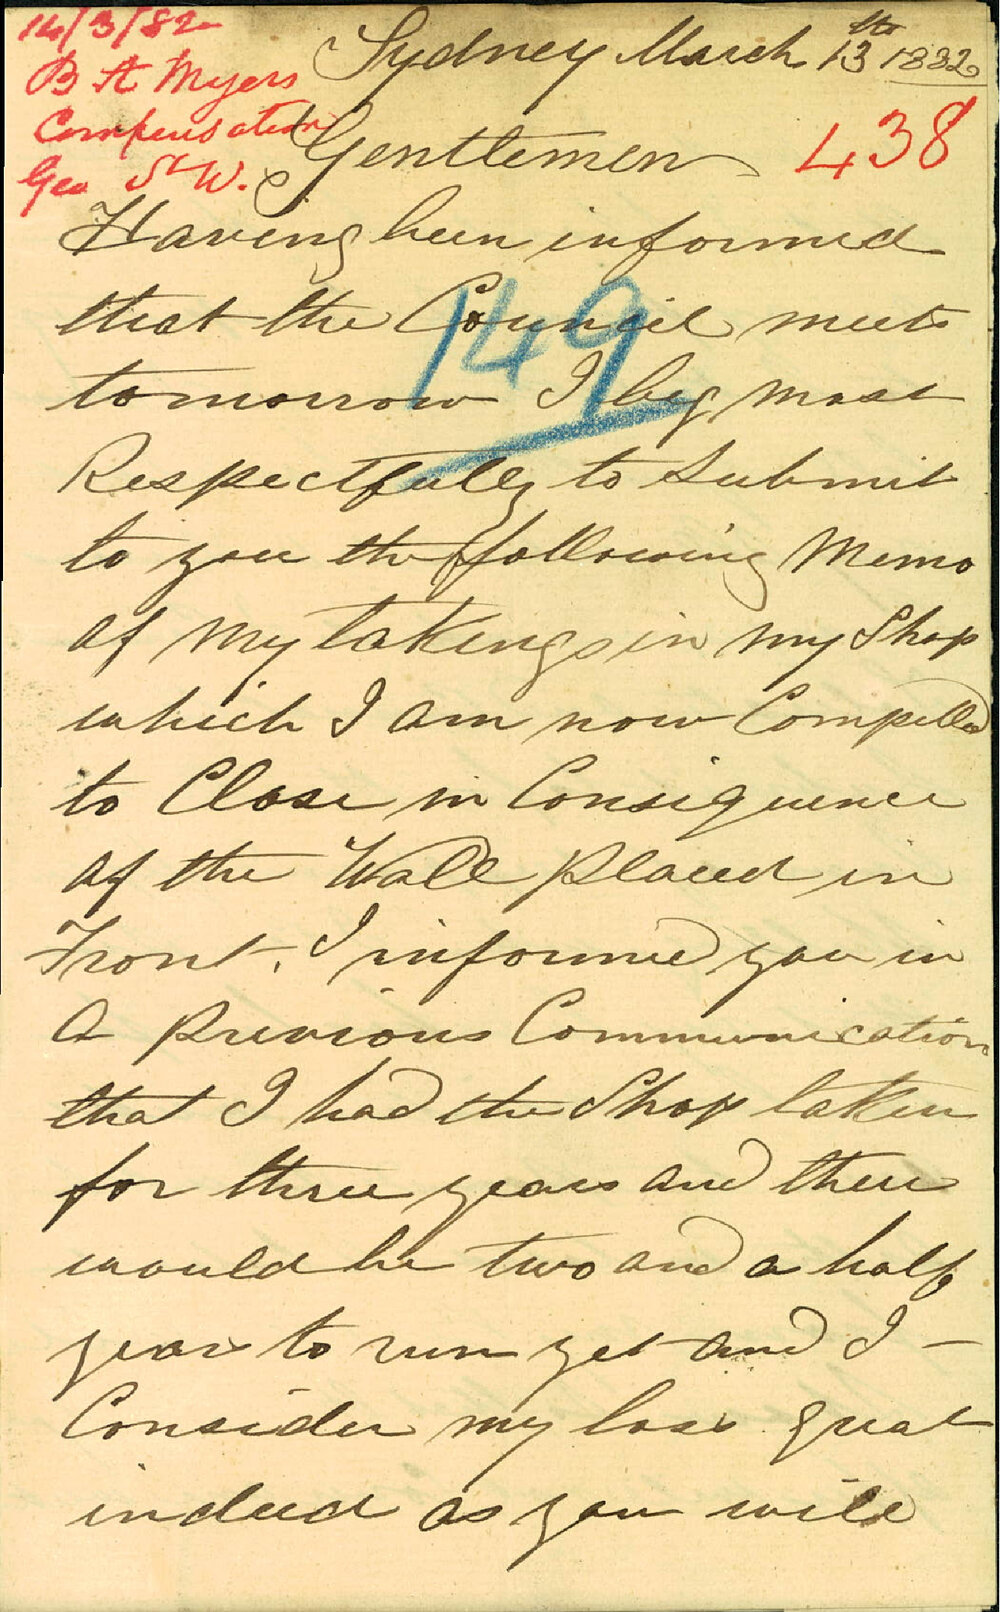 14/3/82
B A Myers
Compensation
Geo St W.
Sydney March 13th 1882
438
Gentlemen
Having been informed
that the Council meets
149
tomorrow I beg most
Respectfully to Submit
to you the following Memo
of my takings in my Shop
which I am now Compelled
to Close in Consequence
of the Wall placed in
Front. I informed you in
a previous Communication
that I had the Shop taken
for three years and there
would be two and a half
years to run yet and I -
Consider my loss great
indeed as you will